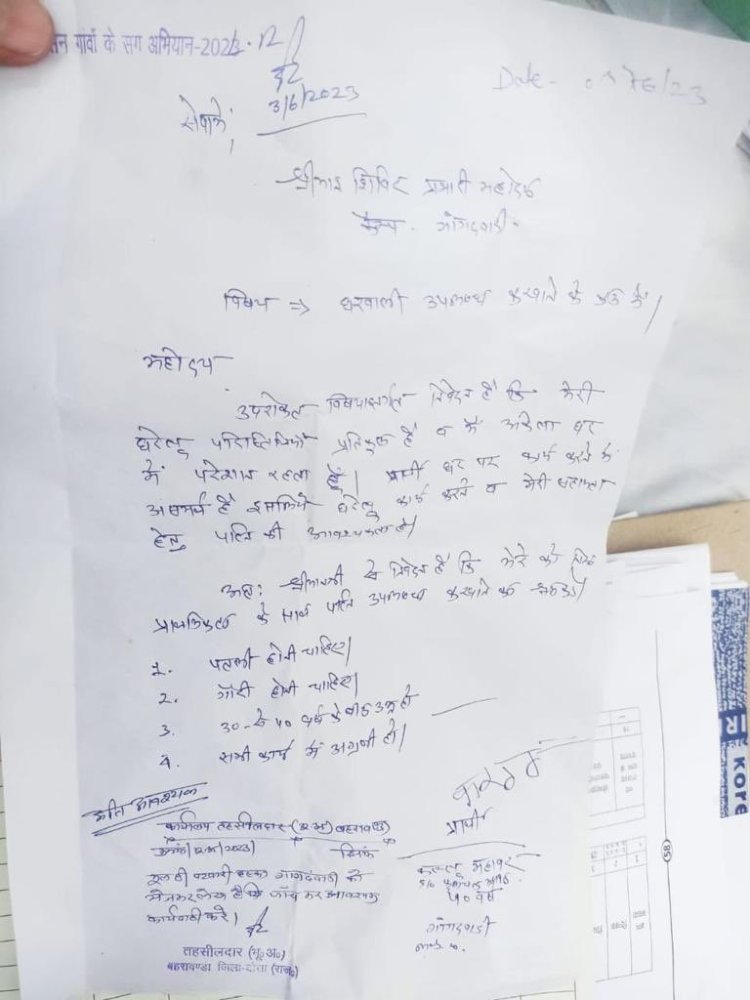 गावों के संग अभियान-2023
3/6/2023
Date - /6/23
सेवामें,
श्रीमान शिविर प्रभारी महोदय
कैम्प - गांगदवाडी -
विषय => घरवाली उपलब्ध करवाने के क्रम में।
महोदय
उपरोक्त विषयान्तर्गत निवेदन है कि मेरी
घरेलू परिस्थितियाँ प्रतिकूल है व मैं अकेला घर
में परेशान रहता हूँ। प्रार्थी घर पर कार्य करने में
असमर्थ है इसलिये घरेलू कार्य करने व मेरी सहायता
हेतु पत्नि की आवश्यकता है।
अतः श्रीमानजी से निवेदन है कि मेरे को निम्न
प्राथमिकता के साथ पत्नि उपलब्ध करवाने का
1. पतली होनी चाहिए।
2. गौरी होनी चाहिए।
3. 30 से 40 वर्ष के बीच उम्र हो
4. सभी कार्य में अग्रणी हो।
अति आवश्यक
प्रार्थी
कल्लू महावर
40 वर्ष
गांगदवाडी
कार्यालय तहसीलदार (भू.अ.) बहरावण्डा
क्रमांक 2023 दिनांक
मूल ही पटवारी हल्का गांगदवाडी को
भेजकर लेख है कि जाँच कर आवश्यक
कार्यवाही करे।
तहसीलदार (भू० अ०)
बहरावण्डा जिला-दौसा (राज०)
KORE
58